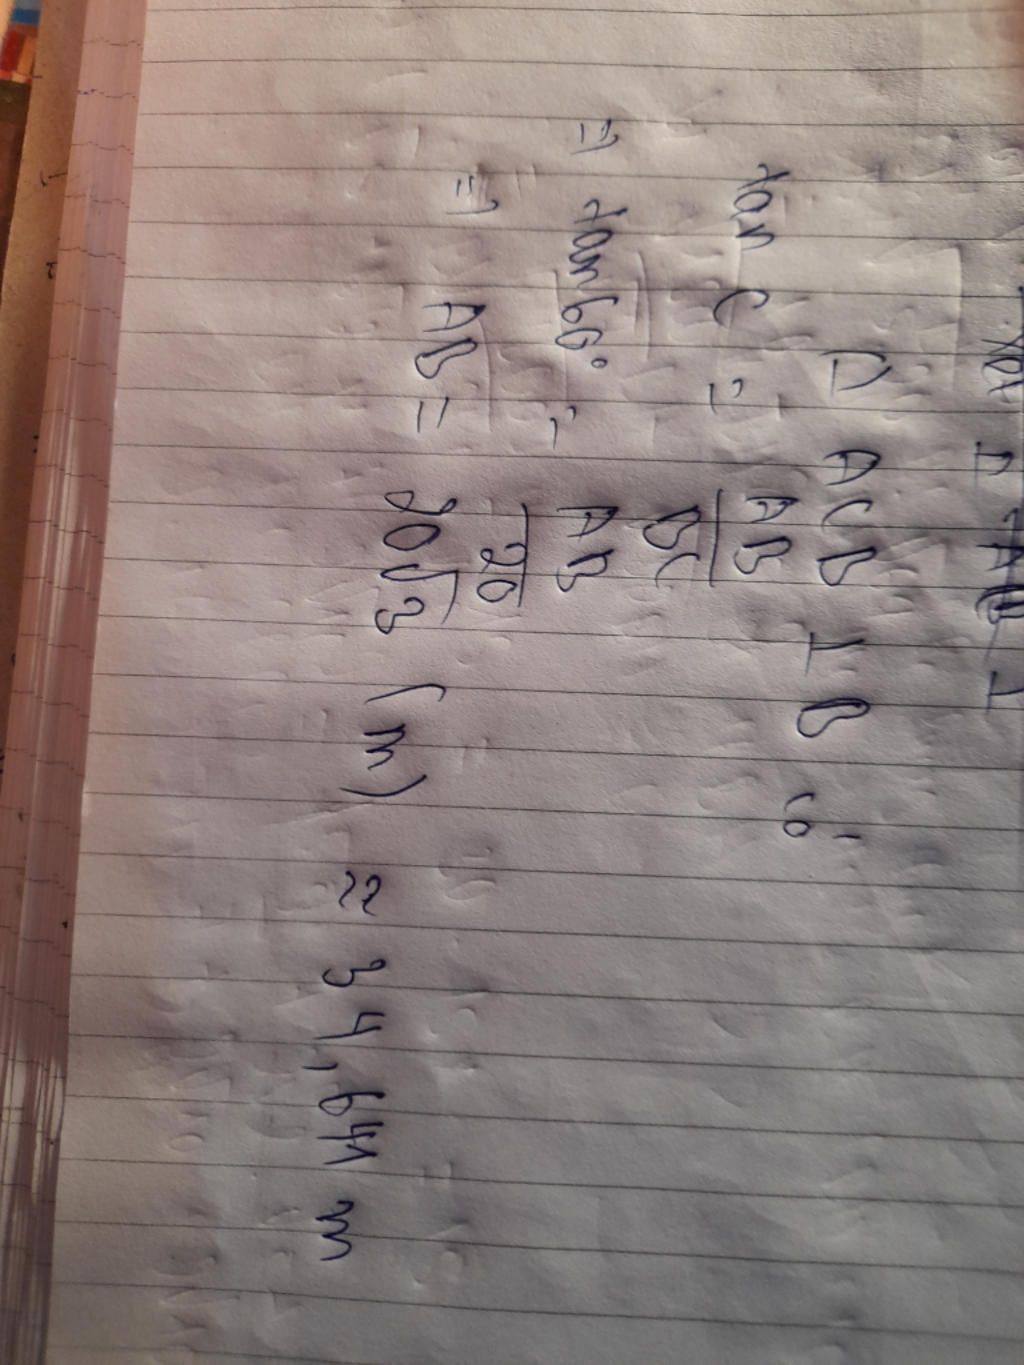 Xét Δ AB
Δ ACB ⊥ B có
tan C = AB/BC
⇒ tan 60° = AB/20
⇒ AB = 20√3 (m) ≈ 34,641 m